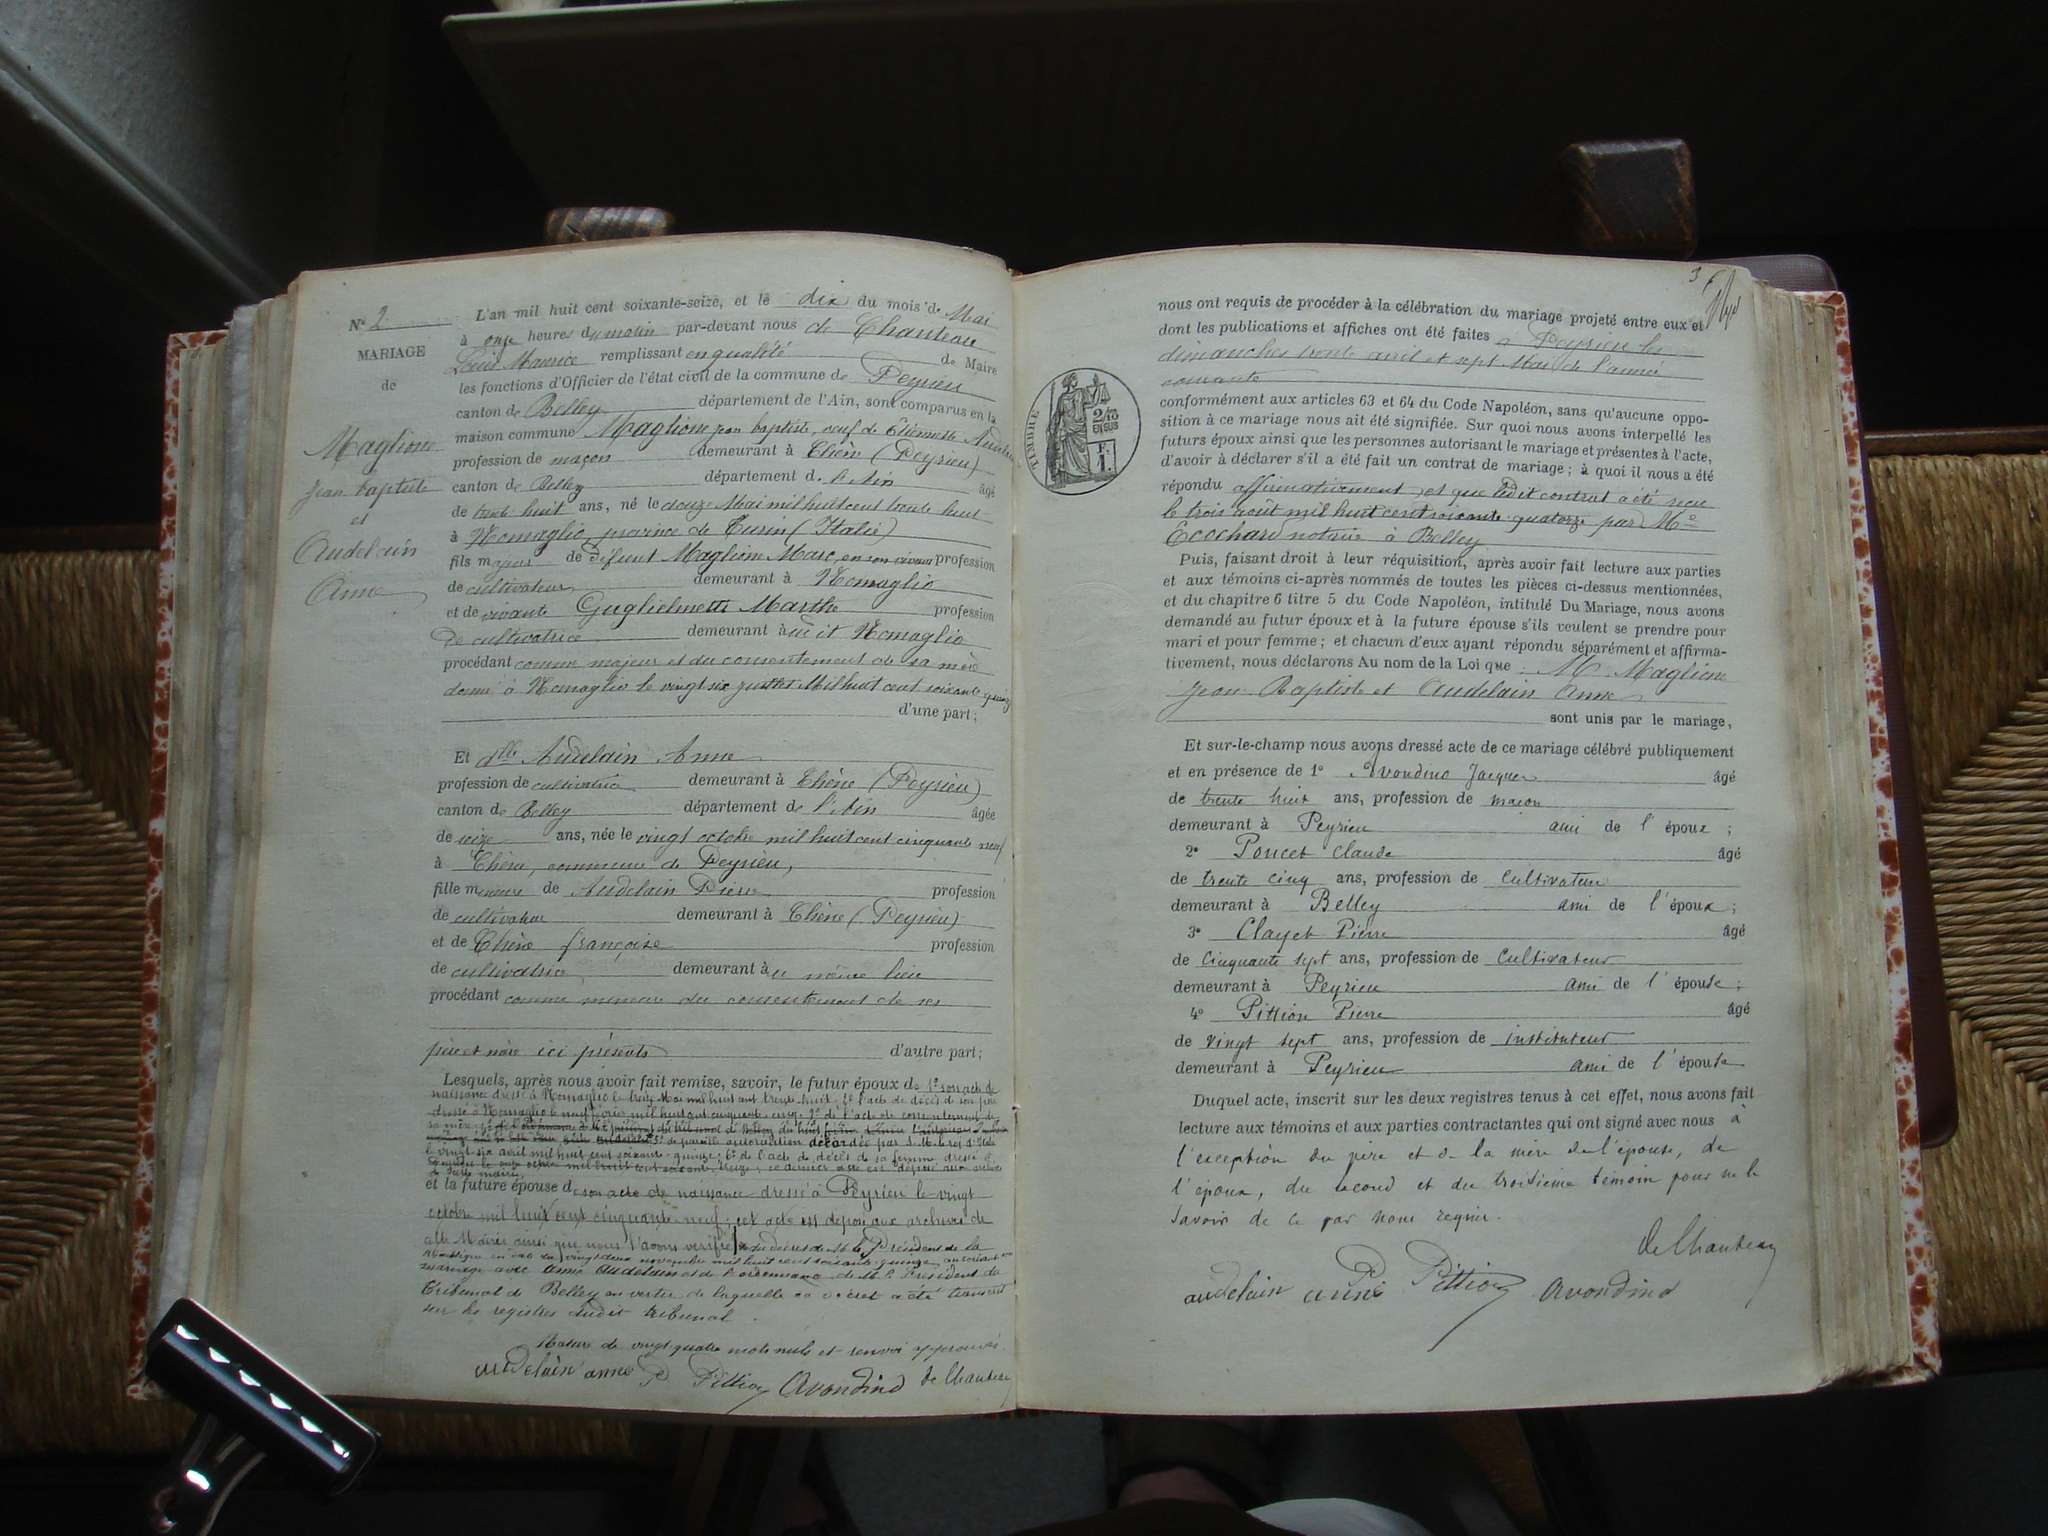 N° 2
MARIAGE
de
Maglione
Jean baptiste
et
Audelain
Anne
L'an mil huit cent soixante-seize, et le dix du mois de Mai
à onze heures du matin par-devant nous de Chanteau
Louis Maurice remplissant en qualité de Maire
les fonctions d'Officier de l'état civil de la commune de Peyrieu
canton de Belley département de l'Ain, sont comparus en la
maison commune Maglione jean baptiste, veuf de Etiennette Audelain
profession de maçon demeurant à Thère (Peyrieu)
canton de Belley département de l'Ain âgé
de trente huit ans, né le douze Mai mil huit cent trente huit
à Nomaglio, province de Turin (Italie)
fils majeur de défunt Maglione Marc, en son vivant profession
de cultivateur demeurant à Nomaglio
et de vivante Guglielmetti Marthe profession
de cultivatrice demeurant à Nomaglio
procédant comme majeur et du consentement de sa mère
donné à Nomaglio le vingt six Mil huit cent soixante quinze
d'une part;
Et dlle Audelain Anne
profession de cultivatrice demeurant à Thère (Peyrieu)
canton de Belley département de l'Ain âgée
de seize ans, née le vingt octobre mil huit cent cinquante neuf
à Thère, commune de Peyrieu,
fille mineure de Audelain Pierre profession
de cultivateur demeurant à Thère (Peyrieu)
et de Thère françoise profession
de cultivatrice demeurant au même lieu
procédant comme mineure du consentement de ses
père et mère ici présents d'autre part;
Lesquels, après nous avoir fait remise, savoir, le futur époux de 1° son acte de
naissance dressé à Nomaglio le treize Mai mil huit cent trente huit; 2° l'acte de décès de son père
dressé à Nomaglio le neuf mil huit cent cinquante cinq; 3° de l'acte de consentement de
sa mère;
5° de pareille autorisation accordée par S. M. le roi d'Italie
le vingt six avril mil huit cent soixante-quinze; 6° de l'acte de décès de sa femme dressé à
Peyrieu le onze mil huit cent soixante treize; ce dernier acte est déposé aux archives
de cette mairie
et la future épouse de son acte de naissance dressé à Peyrieu le vingt
octobre mil huit cent cinquante-neuf; cet acte est déposé aux archives de
cette Mairie ainsi que nous l'avons vérifié du décret de M. le Président de la
République en date du vingt deux novembre mil huit cent soixante-quinze autorisant son
mariage avec Anne Audelain et de l'ordonnance de M. le Président du
Tribunal de Belley en vertu de laquelle ce décret a été transcrit
sur les registres dudit tribunal.
Rature de vingt quatre mots nuls et renvoi approuvés.
audelain anne P Pittion Avondino de Chanteau
3
nous ont requis de procéder à la célébration du mariage projeté entre eux et
dont les publications et affiches ont été faites à Peyrieu les
dimanches trente avril et sept Mai de l'année
courante
conformément aux articles 63 et 64 du Code Napoléon, sans qu'aucune oppo-
sition à ce mariage nous ait été signifiée. Sur quoi nous avons interpellé les
futurs époux ainsi que les personnes autorisant le mariage et présentes à l'acte,
d'avoir à déclarer s'il a été fait un contrat de mariage; à quoi il nous a été
répondu affirmativement, et que ledit contrat a été reçu
le trois août mil huit cent soixante quatorze par Me
Ecochard notaire à Belley
TIMBRE
2/10
EN SUS
F.
1.
Puis, faisant droit à leur réquisition, après avoir fait lecture aux parties
et aux témoins ci-après nommés de toutes les pièces ci-dessus mentionnées,
et du chapitre 6 titre 5 du Code Napoléon, intitulé Du Mariage, nous avons
demandé au futur époux et à la future épouse s'ils veulent se prendre pour
mari et pour femme; et chacun d'eux ayant répondu séparément et affirma-
tivement, nous déclarons Au nom de la Loi que : M. Maglione
Jean Baptiste et Audelain Anne
sont unis par le mariage,
Et sur-le-champ nous avons dressé acte de ce mariage célébré publiquement
et en présence de 1° Avondino Jacques âgé
de trente huit ans, profession de maçon
demeurant à Peyrieu ami de l'époux ;
2° Poncet Claude âgé
de trente cinq ans, profession de cultivateur
demeurant à Belley ami de l'époux ;
3° Clayet Pierre âgé
de cinquante sept ans, profession de cultivateur
demeurant à Peyrieu ami de l'épouse ;
4° Pittion Pierre âgé
de vingt sept ans, profession de instituteur
demeurant à Peyrieu ami de l'épouse
Duquel acte, inscrit sur les deux registres tenus à cet effet, nous avons fait
lecture aux témoins et aux parties contractantes qui ont signé avec nous à
l'exception du père et de la mère de l'épouse, de
l'époux, du second et du troisième témoin pour ne le
savoir de ce par nous requis.
de Chanteau
audelain anne P Pittion Avondino